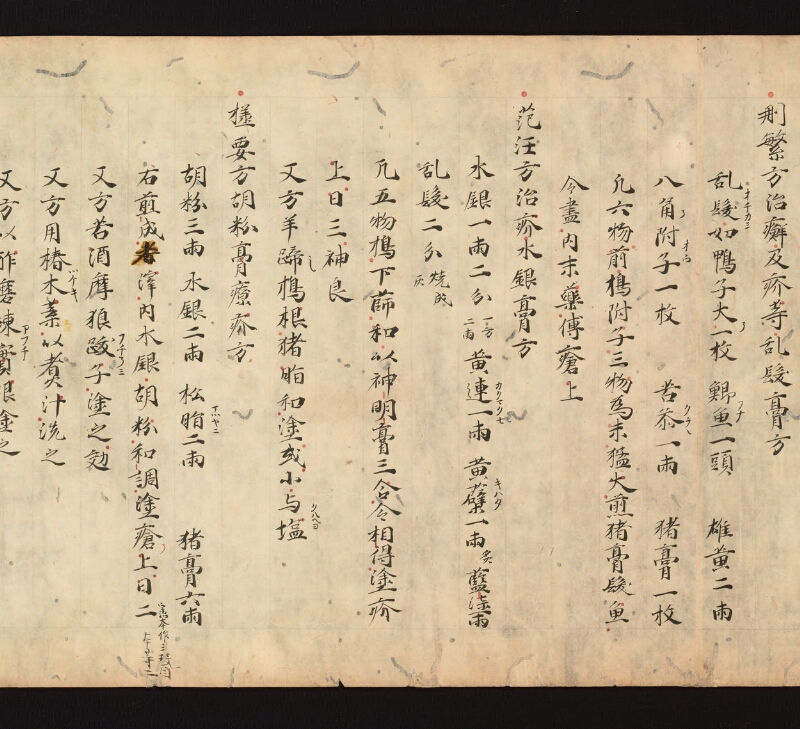 刪繁方治癬及疥等乱髮膏方
乱髮如鴨子大一枚 鯽魚一頭 雄黄二兩
八角附子一枚 苦参一兩 猪膏一枚
凡六物前搗附子三物為末猛火煎猪膏髮魚
令盡内末藥傅瘡上
范汪方治疥水銀膏方
水銀一兩二分 一方二兩 黄連一兩 黄蘗一兩炙 藍漆一兩
乱髮二分 燒成灰
凡五物搗下篩和以神明膏三合令相得塗疥
上日三神良
又方羊蹄搗根猪脂和塗或小与塩
樣要方胡粉膏療疥方
胡粉三兩 水銀二兩 松脂二兩 猪膏六兩
右煎成者滓内水銀胡粉和調塗瘡上日二
又方若酒摩狼跋子塗之効
又方用椿木葉以煮汁洗之
又方以酢磨楝實根塗之